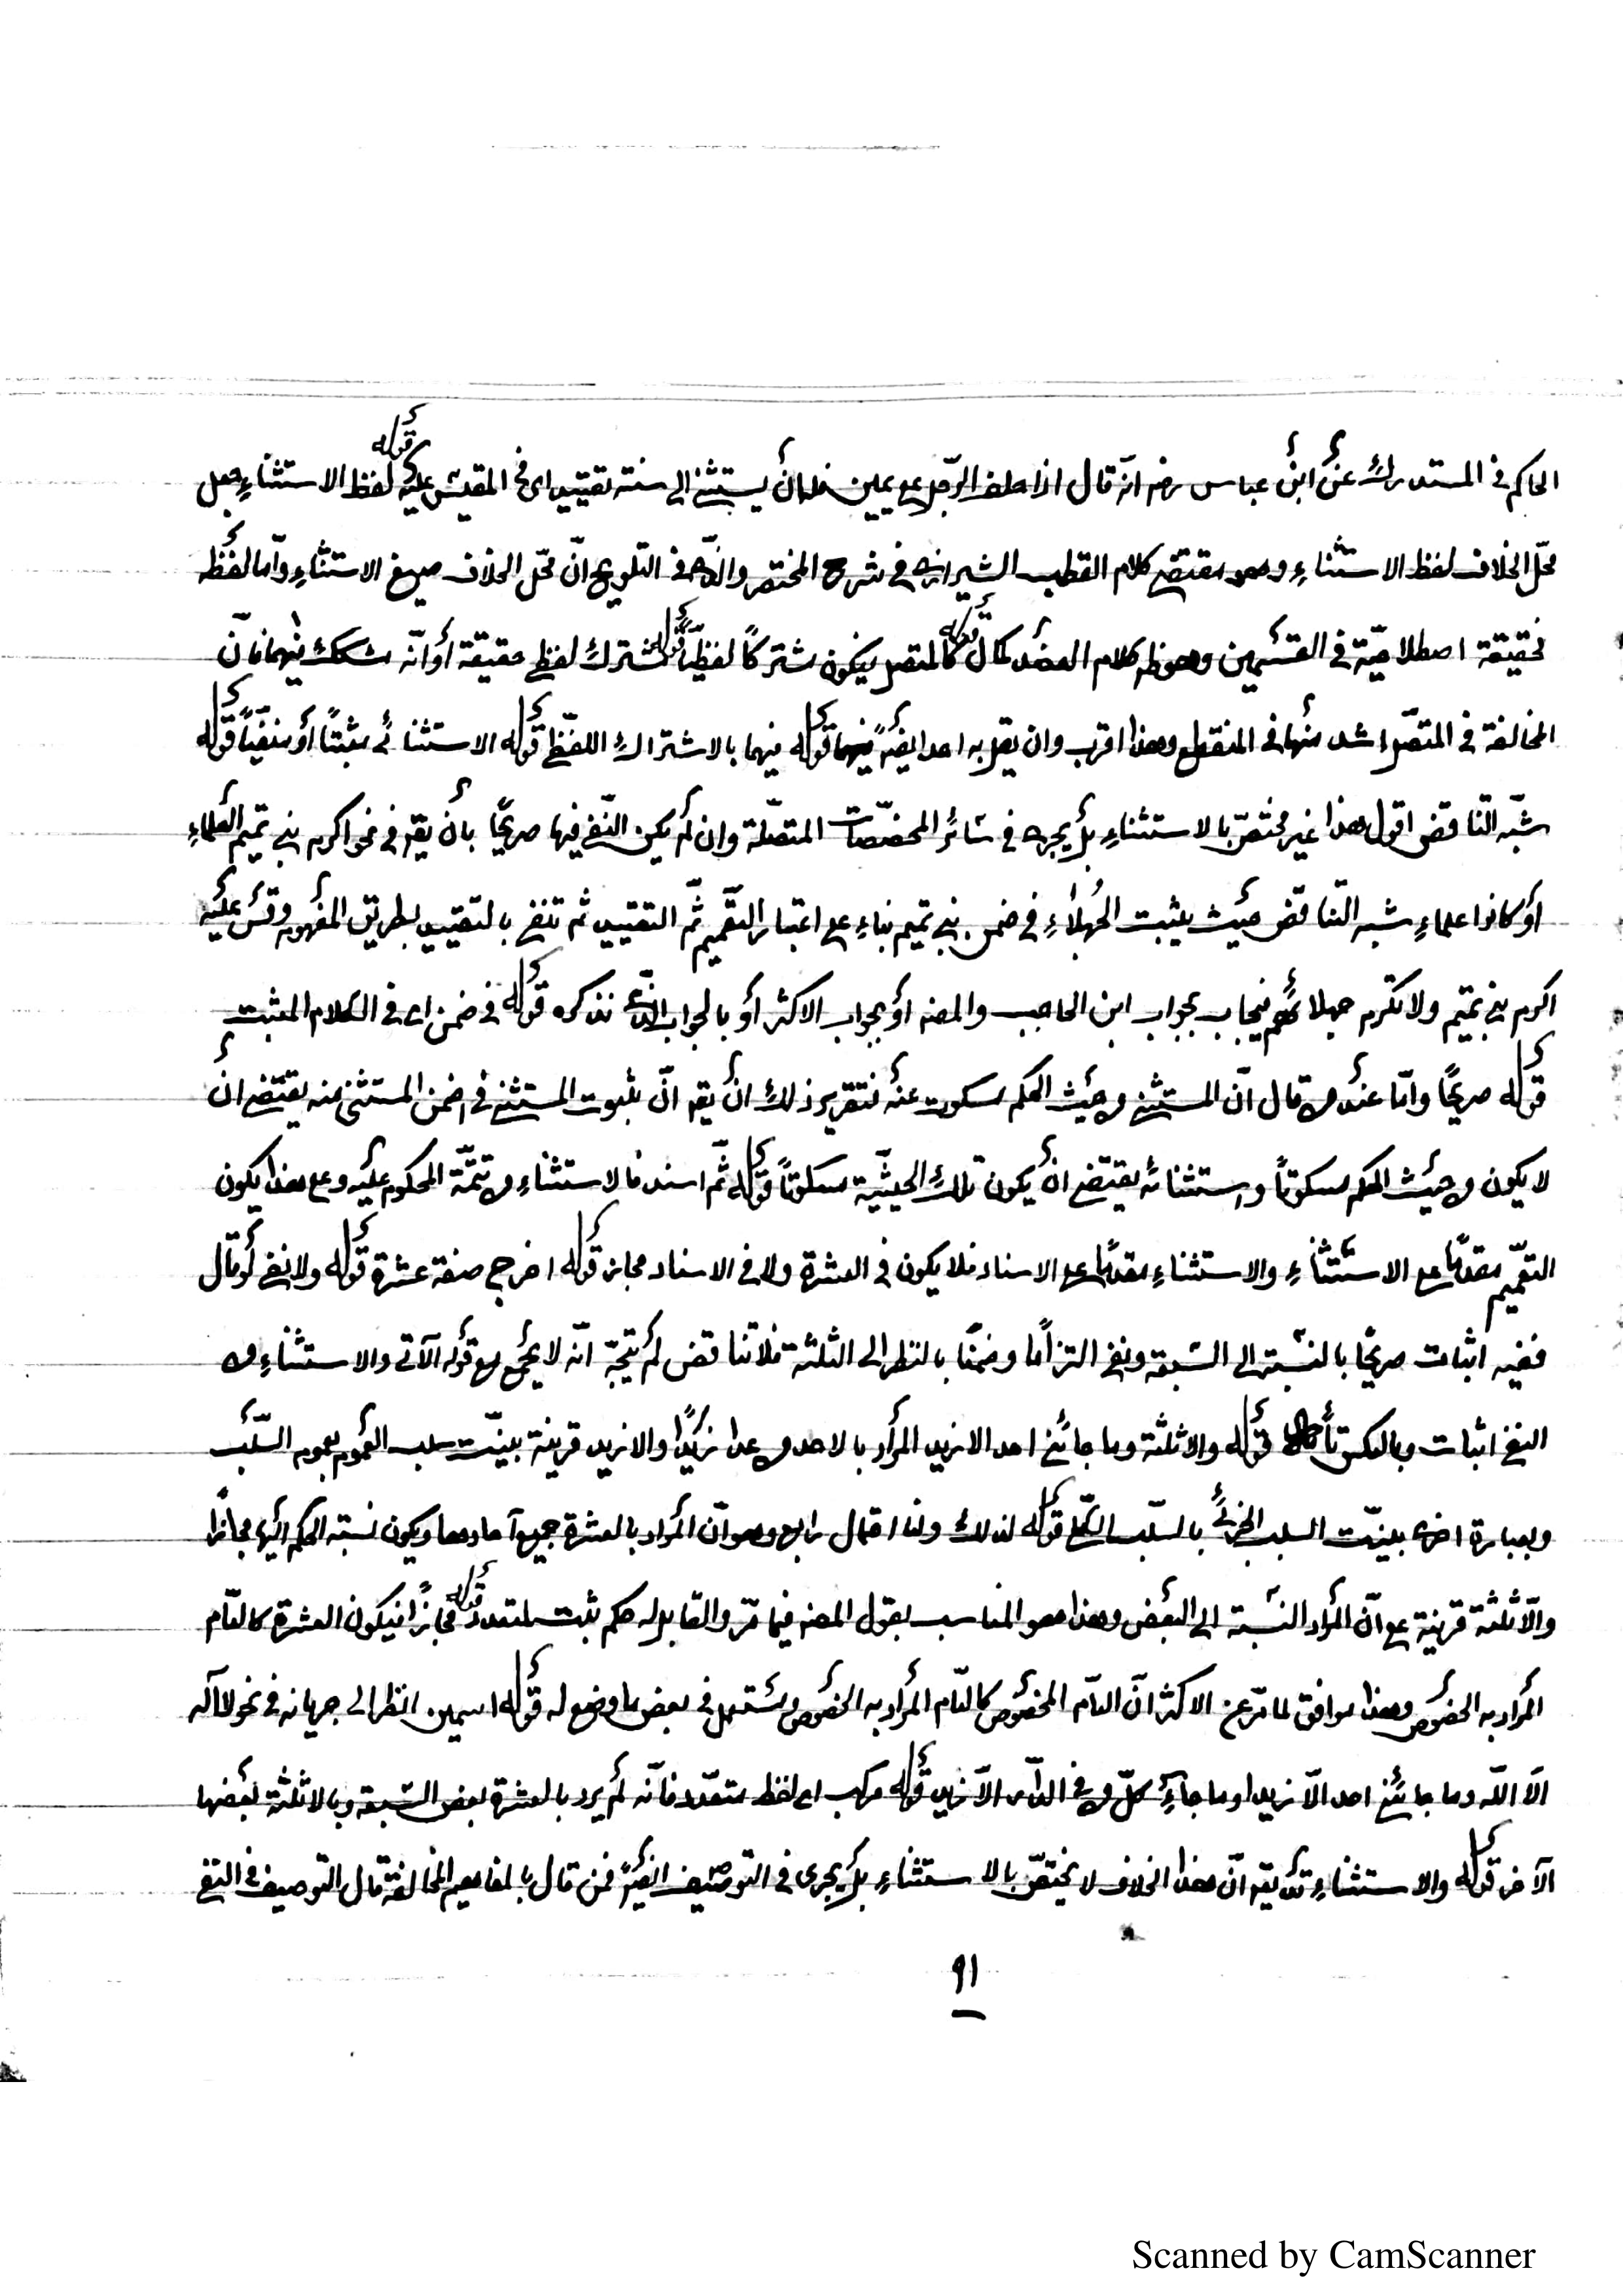 الحاكم في المستدرك عن ابن عباس رضه انه قال اذا حلف الرّجل على يمين فله ان يستثنى الى سنة تقييد اى في المقيس عليه قوله لفظ الاستثناء جعل
محّل الخلاف لفظ الاستثناء وهو مقتضى كلام القطب الشيرازى في شرح المختصر والذى في التلويح انّ محّل الخلاف صيغ الاستثناء وامّا لفظه
فحقيقة اصطلاحيّة في القسمين وهو ظه كلام العضد كمال قوله كالمتصل يكون مشتركًا لفظيّاً قوله مشترك لفظي حقيقة أو انّه مشكك فيهما فانّ
المخالفة في المتصّل اشد منها في المنقطع وهذا اقرب وان لم يقل به احد ايضًا قوله فيهما بالاشتراك اللفظّي قوله الاستثنائى مثبتًا أو منفيّاً قوله
شبّه التّناقض اقول هذا غير مختصّ بالاستثناء بل يجرى في سائر المخصّصات المتصّلة وان لم يكن النّفي فيها صريحًا بأن يقه في نحو اكرم بني تميم العلماء
أو كانوا علماء شبه التّناقض حيث يثبت الجهلاء في ضمن بني تميم بناء على اعتبار التعّميم ثّم التقييد ثم تنفى بالتقييد بطريق المفهوم وقس عليه
اكرم بني تميم ولا تكرم جهلائهم فيجاب بجواب ابن الحاجب والمصنه أو بجواب الاكثر أو بالجواب الذّى نذكره قوله في ضمن اى في الكلام المثبت
قوله صريحًا وامّا عند من قال انّ المستثنى من حيث الحكم مسكوت عنه فتقرير ذلك ان يقه انّ ثبوت المستثنى في ضمن المستثنى منه يقتضى ان
لا يكون من حيث الحكم مسكوتاً واستثنائه يقتضى ان يكون تلك الحيثيّة مسكوتاً قوله ثّم اسند فالاستثناء من تتمّة المحكوم عليه وعلى هذا يكون
التعّميم مقدمًا على الاستثناء والاستثناء مقدمًا على الاسناد فلا يكون في العشرة ولا في الاسناد مجاز قوله اخرج صفة عشرة قوله ولا نفى لو قال
ففيه اثبات صريحًا بالنسبة الى السّبعة ونفي التزامًا وضمنًا بالنظر الى الثلثة فلا تناقض لم يتجّه انّه لا يجمع مع قوله الآتى والاستثناء من
النفي اثبات وبالعكس قوله والا ثلثة وما جائنى احد الا زيد المراد بالاحد من عدا زيدًا والا زيد قرينة بينّت سلب العموم بعموم السّلب
وبعبارة اخرى بينّت السلب الجزئى بالسّلب الكلّى قوله لذلك ولنا احتمال رابع وهو انّ المراد بالعشرة جميع آحادها ويكون نسبة الحكم اليها مجازا
والّا ثلثة قرينة على انّ المراد النسّبة الى البعض وهذا هو المناسب لقول المصنه فيما مّر والقابل له حكم ثبت لمتعدد قوله مجازًا فيكون العشرة كالعّام
المراد به الخصوص وهذا موافق لما مّر عن الاكثر انّ العاّم المخصوص كالعاّم المراد به الخصوص ويستعمل في بعض ما وضع له قوله اسمين انظر الى جريانه في نحو لا اله
الا اللّه وما جائنى احد الّا زيد او ما جاء كلّ من في الدّار الّا زيد قوله مركب اى لفظ متعدد فانّه لم يرد بالعشرة بعض السّبعة وبالا ثلثة بعضها
الآخر قوله والاستثناء قد يقه انّ هذا الخلاف لا يختصّ بالاستثناء بل يجرى في التوصيف ايضًا فمن قال بالمفاهيم المخالفة قال التوصيف في النفي
٩١
Scanned by CamScanner